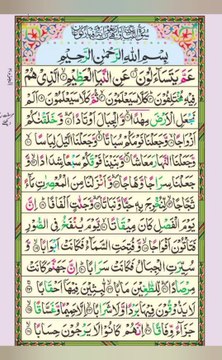 بِسْمِ اللهِ الرَّحْمٰنِ الرَّحِيْمِ
عَمَّ يَتَسَآءَلُوْنَ ۚ عَنِ النَّبَاِ الْعَظِيْمِ ۙ الَّذِيْ هُمْ
فِيْهِ مُخْتَلِفُوْنَ ؕ كَلَّا سَيَعْلَمُوْنَ ۙ ثُمَّ كَلَّا سَيَعْلَمُوْنَ ۞ اَلَمْ
نَجْعَلِ الْاَرْضَ مِهٰدًا ۙ وَّالْجِبَالَ اَوْتَادًا ۙ وَّخَلَقْنٰكُمْ
اَزْوَاجًا ۙ وَّجَعَلْنَا نَوْمَكُمْ سُبَاتًا ۙ وَّجَعَلْنَا الَّيْلَ لِبَاسًا ۙ
وَّجَعَلْنَا النَّهَارَ مَعَاشًا ۪ وَّبَنَيْنَا فَوْقَكُمْ سَبْعًا شِدَادًا ۙ وَّ
جَعَلْنَا سِرَاجًا وَّهَّاجًا ۪ وَّاَنْزَلْنَا مِنَ الْمُعْصِرٰتِ مَآءً
ثَجَّاجًا ۙ لِّنُخْرِجَ بِهٖ حَبًّا وَّنَبَاتًا ۙ وَّجَنّٰتٍ اَلْفَافًا ؕ اِنَّ
يَوْمَ الْفَصْلِ كَانَ مِيْقَاتًا ۙ يَّوْمَ يُنْفَخُ فِي الصُّوْرِ
فَتَاْتُوْنَ اَفْوَاجًا ۙ وَّفُتِحَتِ السَّمَآءُ فَكَانَتْ اَبْوَابًا ۙ وَّ
سُيِّرَتِ الْجِبَالُ فَكَانَتْ سَرَابًا ؕ اِنَّ جَهَنَّمَ كَانَتْ
مِرْصَادًا ۪ لِّلطّٰغِيْنَ مَاٰبًا ۙ لّٰبِثِيْنَ فِيْهَآ اَحْقَابًا ۚ
لَا يَذُوْقُوْنَ فِيْهَا بَرْدًا وَّلَا شَرَابًا ۙ اِلَّا حَمِيْمًا وَّغَسَّاقًا ۙ
جَزَآءً وِّفَاقًا ؕ اِنَّهُمْ كَانُوْا لَا يَرْجُوْنَ حِسَابًا ۙ